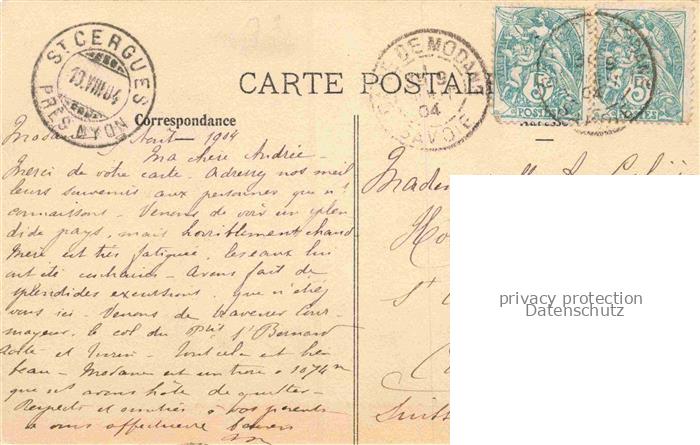 ST CERGUES
10.VIII.04
PRÈS NYON
CARTE POSTALE
DE MODANE
9
04
SAVOIE
5c
POSTES
5c
POSTES
Correspondance
Modane 9 Août 1904
Ma chère Andrée -
Merci de votre carte - Adressez nos meil
leurs souvenirs aux personnes que n/
connaissons - Venons de voir un splen
dide pays, mais horriblement chaud
Mère est très fatiguée, les eaux lui
ont été contraires - Avons fait de
splendides excursions, que n'étiez
vous ici - Venons de traverser Cour
mayeur, le col du Ptit St Bernard
Aoste et Turin - Tout cela est bien
beau - Modane est un trou à 1074 m
que ns avons hâte de quitter -
Respects et amitiés à vos parents
à vous affectueux baisers
Mademoiselle
Suisse
privacy protection
Datenschutz